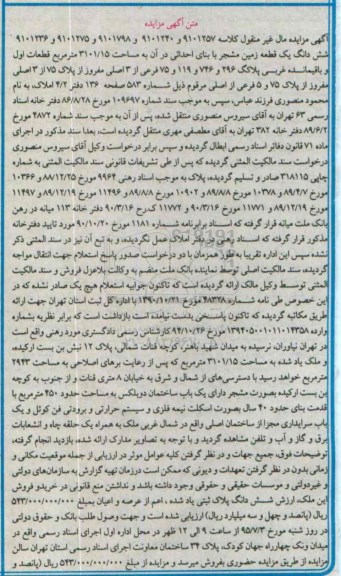 متن آگهی مزایده
آگهی مزایده مال غیر منقول کلاسه ۹۱۰۱۲۵۷ و ۹۱۰۱۲۴۰ و ۹۱۰۱۷۹۸ و ۹۱۰۱۲۷۵ و ۹۱۰۱۲۳۶
شش دانگ یک قطعه زمین مشجر با بنای احداثی در آن به مساحت ۳۱۰۱/۱۵ مترمربع قطعات اول
و باقیمانده فرعی پلاک ۲۹۶ و ۷۴۶ و ۱۱۹ و ۷۵ فرعی از ۳ اصلی مفروز از پلاک ۷۵ از ۳ اصلی
مفروز از پلاک ۷۵ و ۵ فرعی از اصلی مرقوم ذیل شماره ۵۸۳ صفحه ۱۳۶ دفتر ۴/۲ املاک، به نام
محمود منصوری فرزند عباس، سپس به موجب سند شماره ۱۰۹۶۹۷ مورخ ۸۶/۸/۲۸ دفتر خانه اسناد
رسمی ۶۳ تهران به آقای سیروس منصوری منتقل شده، پس از آن به موجب سند شماره ۴۸۷۲ مورخ
۸۹/۶/۲ دفتر خانه ۳۸۲ تهران به آقای مطصفی مهری منتقل گردیده است، بعدا سند مذکور در اجرای
ماده ۷۱ قانون دفاتر اسناد رسمی ابطال گردیده و سپس برابر درخواست وکیل آقای سیروس منصوری
درخواست سند مالکیت المثنی گردیده که پس از طی تشریفات قانونی سند مالکیت المثنی به شماره
چاپی ۳۱۸۱۱۵ صادر و تسلیم گردیده، پلاک به موجب اسناد رهنی ۹۹۶۴ مورخ ۸۸/۱۲/۲۵ و ۱۰۳۶۶
مورخ ۸۹/۴/۷ و ۱۰۳۷۸ مورخ ۸۹/۸/۸ و ۱۰۹۰۲ مورخ ۸۹/۸/۸ و ۱۱۴۹۶ مورخ ۸۹/۱۲/۱۹ و ۱۱۴۹۷
مورخ ۸۹/۱۲/۱۹ و ۱۱۷۷۱ مورخ ۹۰/۳/۱۶ و ۱۱۷۷۲ مورخ ۹۰/۳/۱۶ دفتر خانه ۱۱۳ میانه در رهن
بانک ملت میانه قرار گرفته که اسناد برابرنامه شماره ۱۱۸۱ مورخ ۹۰/۱۰/۲۰ مورد تایید دفترخانه
مذکور قرار گرفته که اسناد رهنی در دفتر املاک عمل نگردیده، و به تبع آن نیز در سند المثنی ذکر
نشده سپس این اداره تقریبا به طور همزمان با دو درخواست صدور پاسخ استعلام جهت انتقال مواجه
گردیده، سند مالکیت اصلی توسط نماینده بانک ملت منضم به وکالت بلاعزل فروش و سند مالکیت
المثنی توسط وکیل مالک ارائه گردیده است که تاکنون جوابیه استعلام هیچ یک صادر نشده که در
این خصوص طی نامه شماره ۴۸۳۲۸ مورخ ۱۳۹۰/۱۰/۲۱ با اداره کل ثبت استان تهران جهت ارائه
طریق مکاتبه گردیده که تاکنون پاسخی بدست نیامده است بازداشت است که برابر نظریه بشماره
وارده ۱۳۹۴۰۵۰۰۱۰۱۱۰۱۴۳۵۸ مورخ ۹۴/۱۰/۲۶ کارشناس رسمی دادگستری مورد رهنی واقع است
در تهران نیاوران، نرسیده به میدان شهید باهنر، کوچه قنات شمالی، پلاک ۱۲ نبش بن بست ارکیده،
و ملک یاد شده به مساحت ۳۱۰۱/۱۵ مترمربع که پس از رعایت برهای اصلاحی به مساحت ۲۹۴۳
مترمربع خواهد رسید با دسترسی‌های از شمال و شرق به خیابان ۸ متری قنات و از جنوب به کوچه
بن بست ارکیده بصورت مشجر دارای یک باب ساختمان دوبلکس به مساحت حدود ۴۵۰ مترمربع با
قدمت بنای حدود ۴۰ سال بصورت اسکلت نیمه فلزی و سیستم حرارتی و برودتی فن کوئل و یک
باب سرایداری مجزا از ساختمان اصلی واقع در شمال غربی ملک به همراه یک حلقه چاه و انشعابات
برق و گاز و آب و تلفن مشاهده گردید و با توجه به تصاویر مدارک ارائه شده، بازدید انجام گرفته،
توضیحات فوق، جمیع جهات و در نظر گرفتن کلیه عوامل موثر در ارزیابی از جمله موقعیت مکانی و
زمانی بدون در نظر گرفتن تعهدات و دیونی که ممکن است درزمان تهیه گزارش به سازمان‌های دولتی
و غیردولتی و موسسات حقیقی و حقوقی وجود داشته باشد و نداشتن منع قانونی در خریدو فروش
این ملک، ارزش شسش دانگ پلاک ثبتی یاد شده ، اعم از عرصه و اعیان بمبلغ ۵۴۳/۰۰۰/۰۰۰/۰۰۰
ریال (پانصد و چهل و سه میلیارد ریال) ارزیابی شده است و جهت وصول طلب بانک و حقوق دولتی
در روز شنبه مورخ ۹۵/۷/۳ از ساعت ۹ الی ۱۲ ظهر در محل اداره اول اجرای اسناد رسمی واقع در
میدان ونک چهارراه جهان کودک، پلاک ۳۴ ساختمان معاونت اجرای اسناد رسمی استان تهران سالن
مزایده از طریق مزایده حضوری بفروش میرسد و مزایده از مبلغ ۵۴۳/۰۰۰/۰۰۰/۰۰۰ ریال (پانصد و